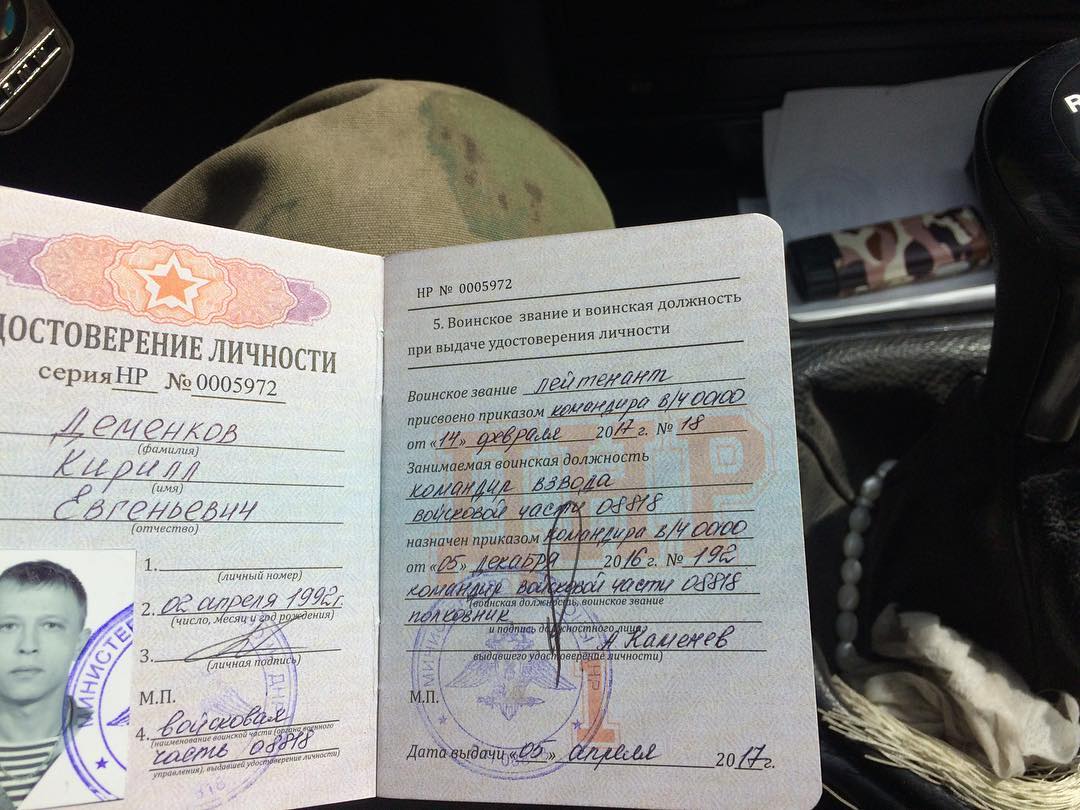 ДОСТОВЕРЕНИЕ ЛИЧНОСТИ
серия НР № 0005972
Деменков
(фамилия)
Кирилл
(имя)
Евгеньевич
(отчество)
1.
(личный номер)
2. 02 апреля 1992г.
(число, месяц и год рождения)
3.
(личная подпись)
М.П.
4. войсковая
(наименование воинской части (органа военного
часть 08818
управления), выдавшей удостоверение личности)
МИНИСТЕР
НР № 0005972
5. Воинское звание и воинская должность
при выдаче удостоверения личности
Воинское звание лейтенант
присвоено приказом командира в/ч 0000
от «14» февраля 2017 г. № 18
Занимаемая воинская должность
командир взвода
войсковой части 08818
назначен приказом командира в/ч 0000
от «05» декабря 2016 г. № 192
командир войсковой части 08818
(воинская должность, воинское звание
полковник
и подпись должностного лица,
А Каменев
выдавшего удостоверение личности)
М.П.
Дата выдачи «05» апреля 2017г.
P